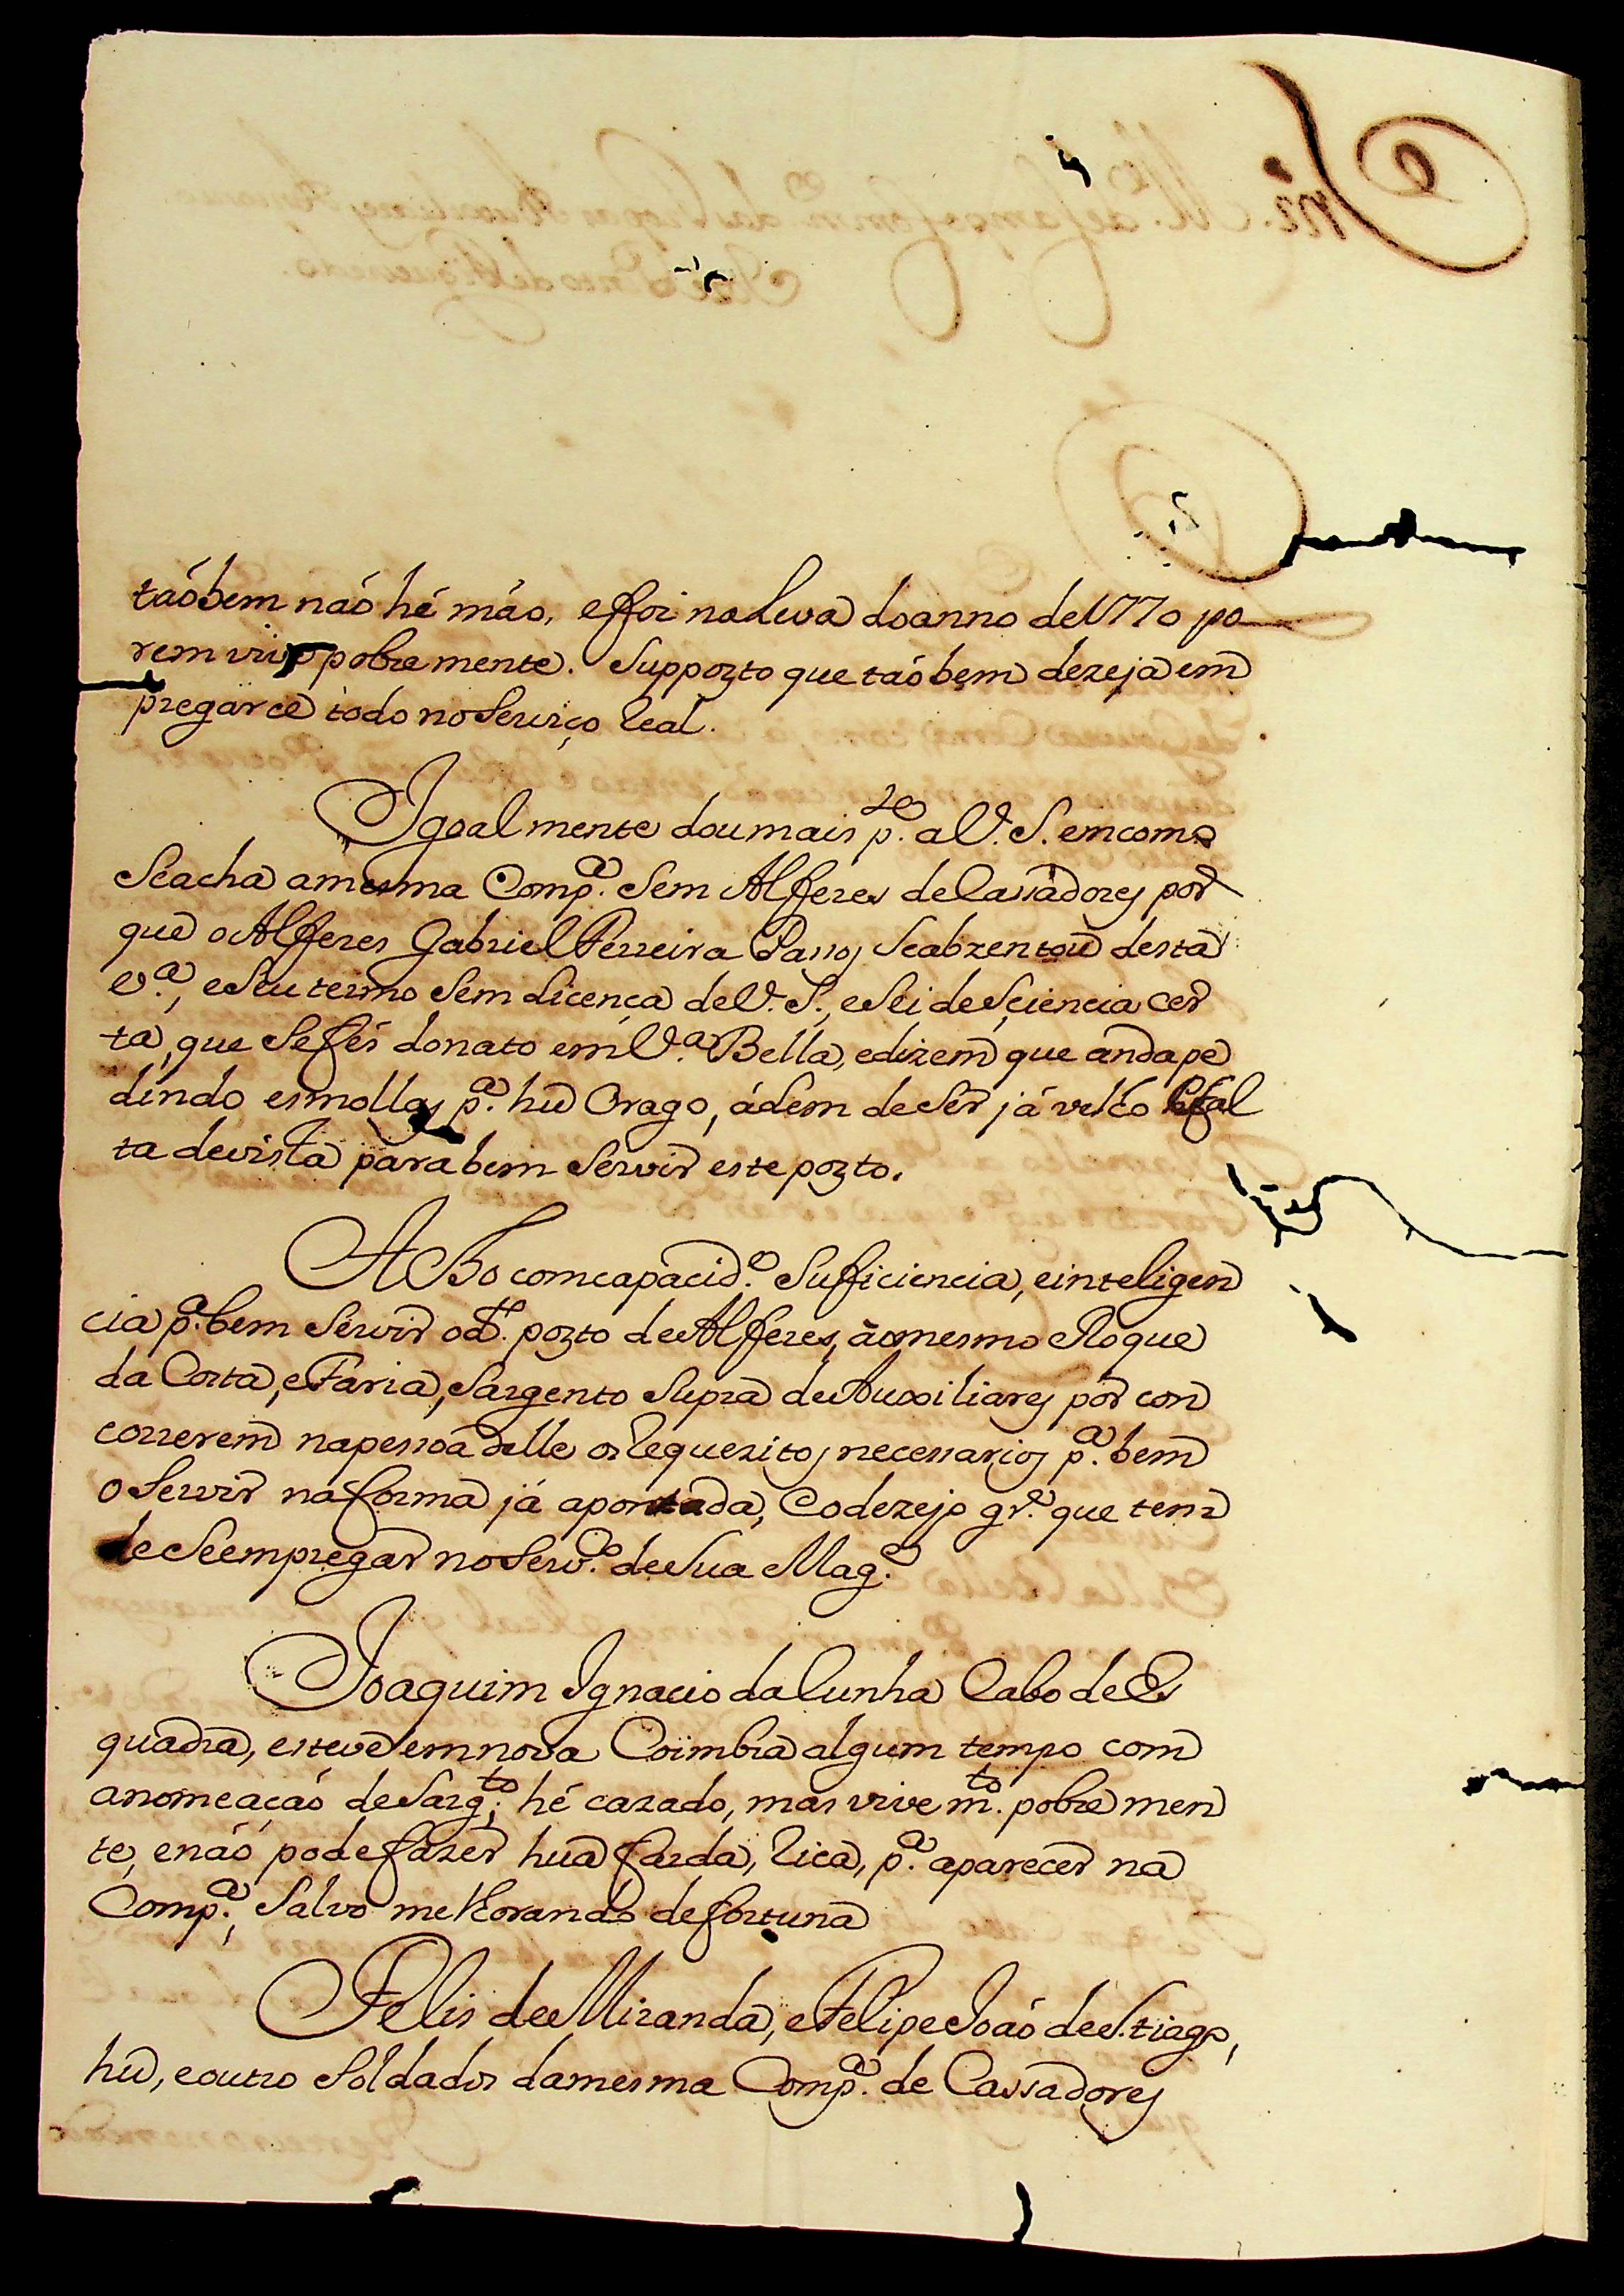 taóbem naó hé máo, effoi naLeva doanno de1770 po
rem vive pobremente. Supposto que taóbem dezeja em
pregarce todo noServiço Real.
Igoalmente doumais p.te aV. S. emcomo
Seacha amesma Comp.a Sem Alfferes deCassadores por
que oAlfferes Gabriel Ferreira Passos Seabzentou desta
V.a, eSeu termo Sem Licença deV. S., eSei deSciencia Cer
ta, que Sefés donato emV.a Bella, edizem que andape
dindo esmollas p.a hũ Orago, ádem deSer já velho efal
ta devista para bem Servir este posto.
AXo comcapacid.e Sufficiencia, einteligen
cia p.a bem Servir od.to posto deAlfferes, aomesmo Roque
da Costa, eFaria, Sargento Supra deAuxiliares por con
correrem napessoa delle osRequezitos necessarios p.a bem
oServir naforma já apontada, Eodezejo gr.e que tem
deSeempregar noServ.o deSua Mag.e
Joaquim Ignacio daCunha Cabo deEs
quadra, esteve emnova Coimbra algum tempo com
anomeaçaó deSarg.to; hé cazado, mas vive m.to pobremen
te, enaó podefazer huã farda, Rica, p.a aparecer na
Comp.a, Salvo melhorando defortuna
Felis deMiranda, eFelipeJoaó deS.tiago,
hũ, eoutro Soldados damesma Comp.a de Cassadores